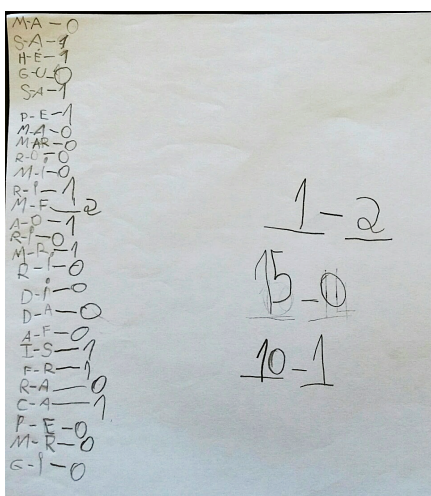 M-A-0
S-A-1
H-E-1
G-U-0
S-A-1
P-E-1
M-A-0
MAR-0
R-O-0
M-i-0
R-i-1
M-F-2
A-D-1
R-i-0
M-R-1
R-i-0
D-i-0
D-A-0
A-F-0
I-S-1
F-R-1
R-A-0
C-A-1
P-E-0
M-R-0
G-i-0
1-2
15-0
10-1